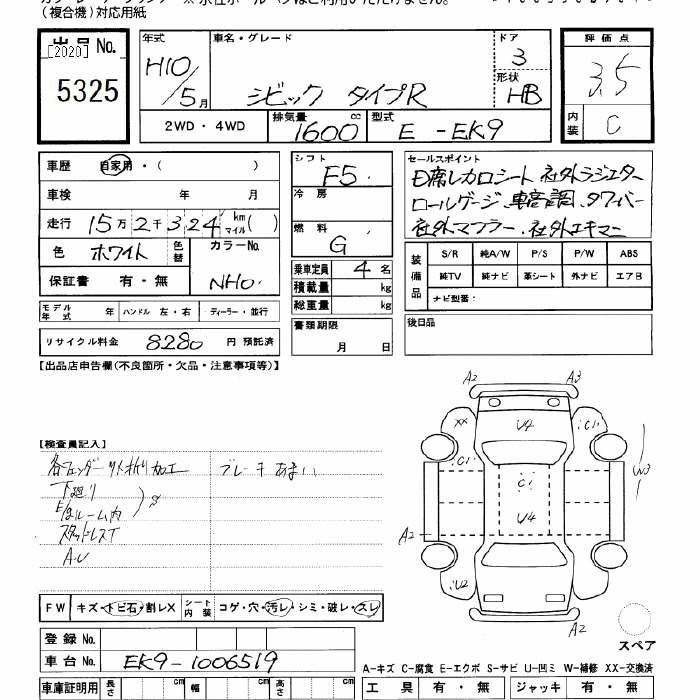 (複合機)対応用紙
出品 No.
[2020]
5325
年式
H10/5月
車名・グレード
シビック タイプR
ドア
3
形状
HB
2WD・4WD
排気量
1600 cc
型式
E-EK9
評価点
3.5
内装
C
車歴 自家用・( )
車検 年 月
走行 15万2千324 km マイル( )
色 ホワイト 色替 カラーNo.
NH0
保証書 有・無
モデル年式 年 ハンドル 左・右 ディーラー・並行
リサイクル料金 8280 円 預託済
シフト
F5
冷房
燃料
G
乗車定員 4 名
積載量 kg
総重量 kg
書類期限
月 日
セールスポイント
D席レカロシート 社外ラジエター
ロールゲージ、車高調、タワーバー
社外マフラー、社外エキマニ
装備品
S/R 純A/W P/S P/W ABS
純TV 純ナビ 革シート 外ナビ エアB
ナビ型番:
後日品
【出品店申告欄(不良箇所・欠品・注意事項等)】
【検査員記入】
各フェンダー ツメ折り加工 ブレーキあまい
下廻り
E/gルーム内 サ
スタッドレスT
A.U
FW キズ・トビ石・割レX シート内装 コゲ・穴・汚レ・シミ・破レ・スレ
登録 No.
車台 No. EK9-1006519
車庫証明用 長さ cm 幅 cm 高さ cm
A2
A3
XX
U4
C1
C1
C1
W3
U4
A2
U2
A2
スペア
A-キズ C-腐食 E-エクボ S-サビ U-凹ミ W-補修 XX-交換済
工具 有・無 ジャッキ 有・無